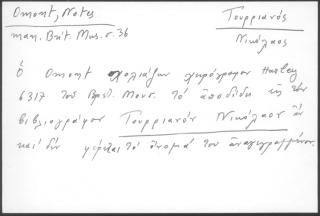 Omont, Notes
man. Brit. Mus. σ. 36
Τουρριανός
Νικόλαος
Ὁ Omont σχολιάζων χειρόγραφον Harley
6317 τοῦ Βρετ. Μουσ. τό ἀποδίδει εἰς τον
βιβλιογράφον Τουρριανόν Νικόλαον ἄν
και δέν φέρεται τό ὄνομά του ἀναγεγραμμένον.